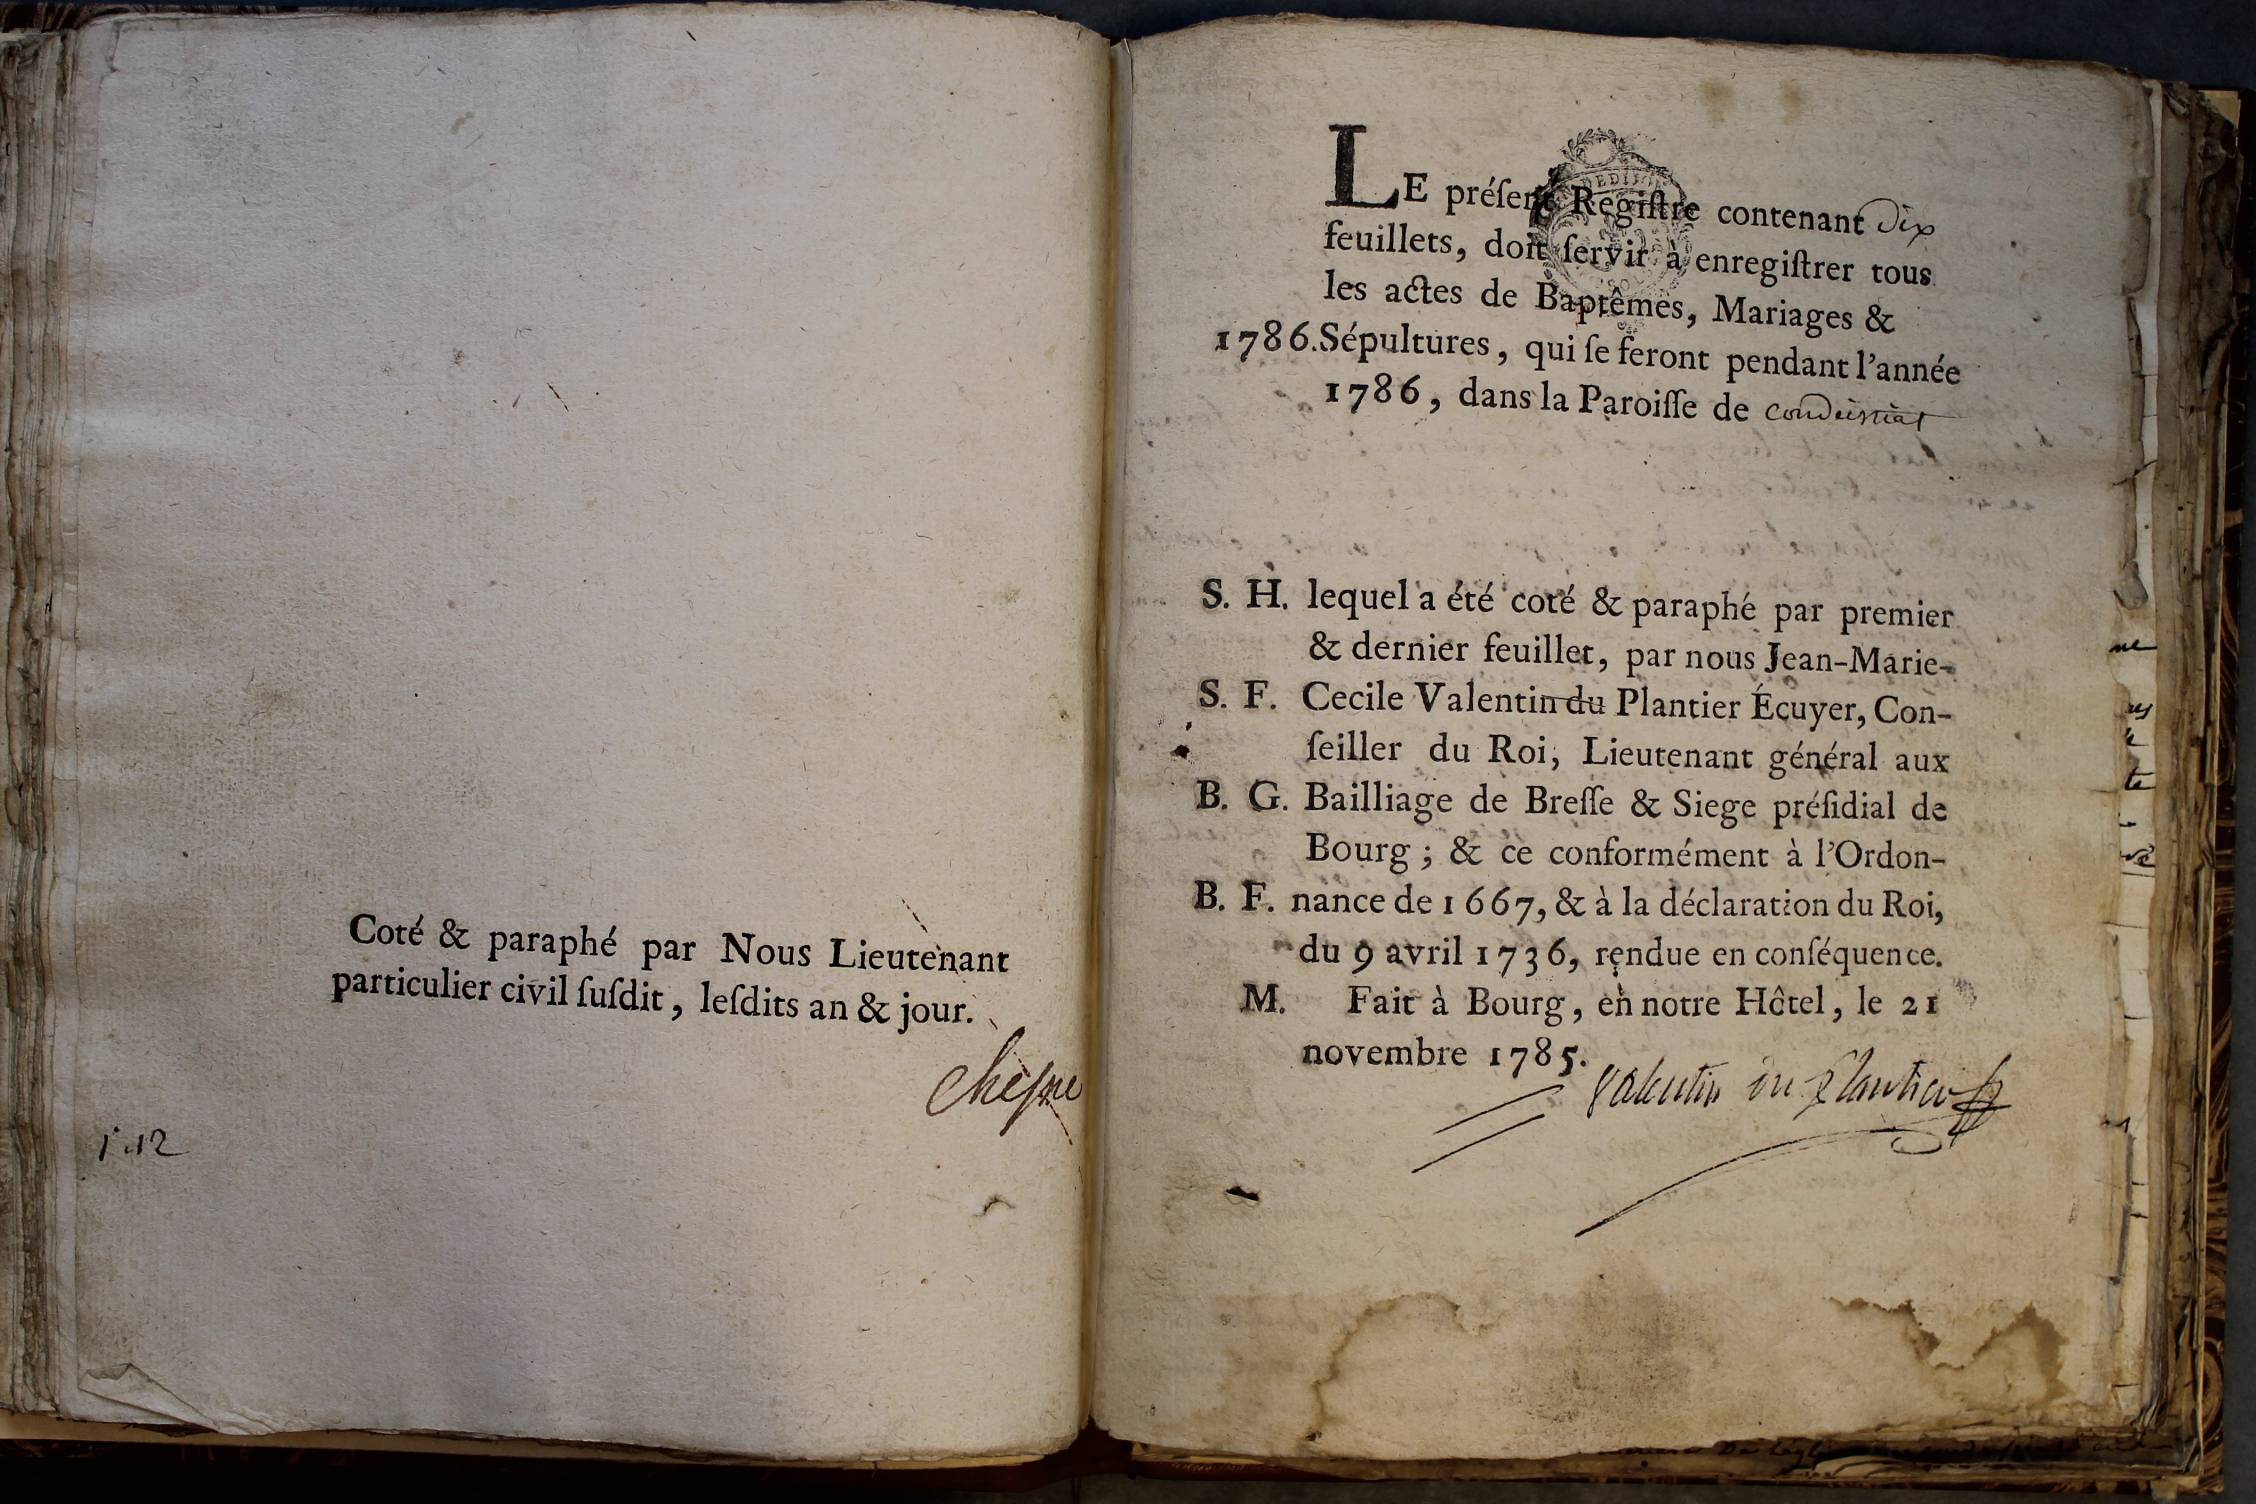 Coté & paraphé par Nous Lieutenant
particulier civil ſuſdit, leſdits an & jour.
cheſne
1.12
LE préſent Regiſtre contenant dix
feuillets, doit ſervir à enregiſtrer tous
les actes de Baptêmes, Mariages &
1786. Sépultures, qui ſe feront pendant l'année
1786, dans la Paroiſſe de condeissiat
S. H. lequel a été coté & paraphé par premier
& dernier feuillet, par nous Jean-Marie-
S. F. Cecile Valentin du Plantier Écuyer, Con-
ſeiller du Roi, Lieutenant général aux
B. G. Bailliage de Breſſe & Siege préſidial de
Bourg ; & ce conformément à l'Ordon-
B. F. nance de 1667, & à la déclaration du Roi,
du 9 avril 1736, rendue en conſéquence.
M. Fait à Bourg, en notre Hôtel, le 21
novembre 1785.
Valentin du Plantier